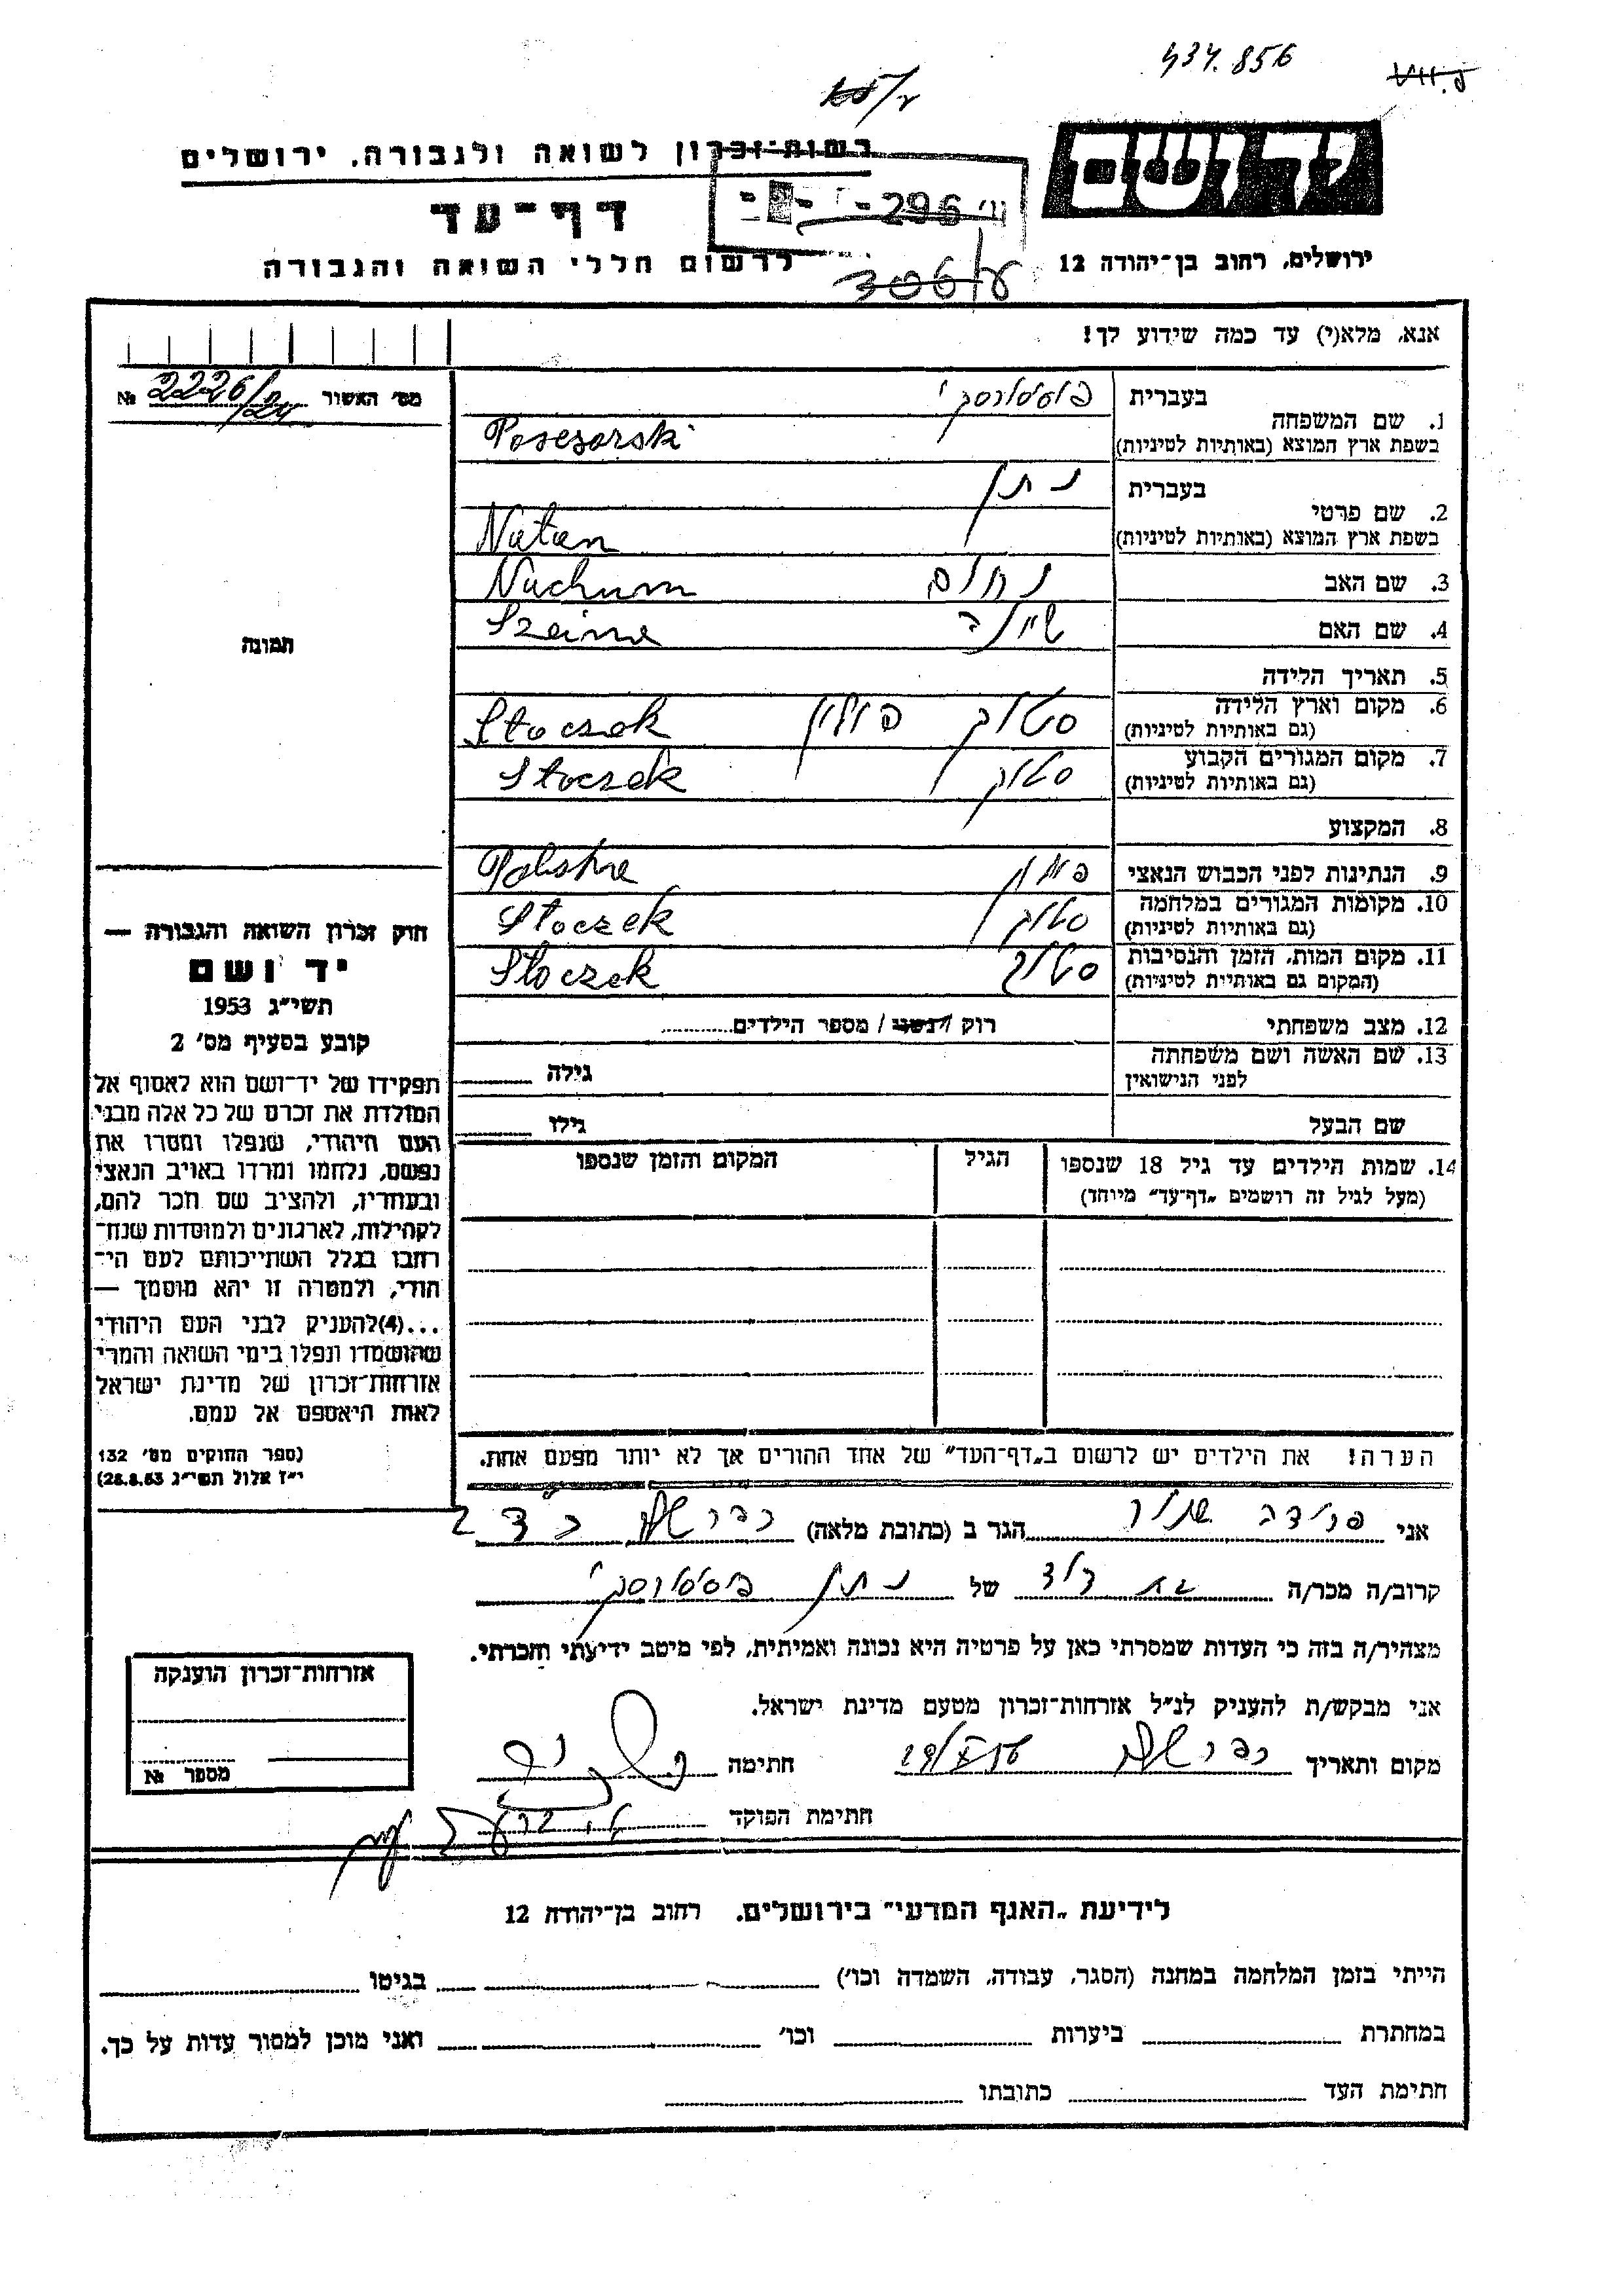 434.856
יד ושם
רשות־זכרון לשואה ולגבורה, ירושלים
דף־עד
לרשום חללי השואה והגבורה
ירושלים, רחוב בן־יהודה 12
אנא, מלא(י) עד כמה שידוע לך!
מס׳ האשור 2226/24 №
1. שם המשפחה
בעברית
בשפת ארץ המוצא (באותיות לטיניות) Posesorski
2. שם פרטי
בעברית נתן
בשפת ארץ המוצא (באותיות לטיניות) Natan
3. שם האב נחום Nachum
4. שם האם
5. תאריך הלידה
6. מקום וארץ הלידה סטוק פולין Stoczek
(גם באותיות לטיניות)
7. מקום המגורים הקבוע סטוק Stoczek
(גם באותיות לטיניות)
8. המקצוע
9. הנתינות לפני הכבוש הנאצי פולין
10. מקומות המגורים במלחמה סטוק Stoczek
(גם באותיות לטיניות)
11. מקום המות, הזמן והנסיבות סטוק Stoczek
(המקום גם באותיות לטיניות)
12. מצב משפחתי רוק / נשוי / מספר הילדים
13. שם האשה ושם משפחתה
לפני הנישואין
גילה
שם הבעל גילו
14. שמות הילדים עד גיל 18 שנספו הגיל המקום והזמן שנספו
(מעל לגיל זה רושמים „דף־עד״ מיוחד)
הערה! את הילדים יש לרשום ב„דף־העד״ של אחד ההורים אך לא יותר מפעם אחת.
תמונה
חוק זכרון השואה והגבורה —
יד ושם
תשי״ג 1953
קובע בסעיף מס׳ 2
תפקידו של יד־ושם הוא לאסוף אל
המולדת את זכרם של כל אלה מבני
העם היהודי, שנפלו ומסרו את
נפשם, נלחמו ומרדו באויב הנאצי
ובעוזריו, ולהציב שם וזכר להם,
לקהילות, לארגונים ולמוסדות שנח־
רבו בגלל השתייכותם לעם הי־
הודי, ולמטרה זו יהא מוסמך —
...(4)להעניק לבני העם היהודי
שהושמדו ונפלו בימי השואה והמרי
אזרחות־זכרון של מדינת ישראל
לאות היאספם אל עמם.
(ספר החוקים מס׳ 132
י״ז אלול תשי״ג 28.8.53)
אני הגר ב (כתובת מלאה)
קרוב/ה מכר/ה בת דוד של נתן
מצהיר/ה בזה כי העדות שמסרתי כאן על פרטיה היא נכונה ואמיתית, לפי מיטב ידיעתי והכרתי.
אני מבקש/ת להעניק לנ״ל אזרחות־זכרון מטעם מדינת ישראל.
מקום ותאריך חתימה
חתימת הפוקד
אזרחות־זכרון הוענקה
מספר №
לידיעת „האגף המדעי״ בירושלים, רחוב בן־יהודה 12
הייתי בזמן המלחמה במחנה (הסגר, עבודה, השמדה וכו׳) בגיטו
במחתרת ביערות וכו׳ ואני מוכן למסור עדות על כך.
חתימת העד כתובתו